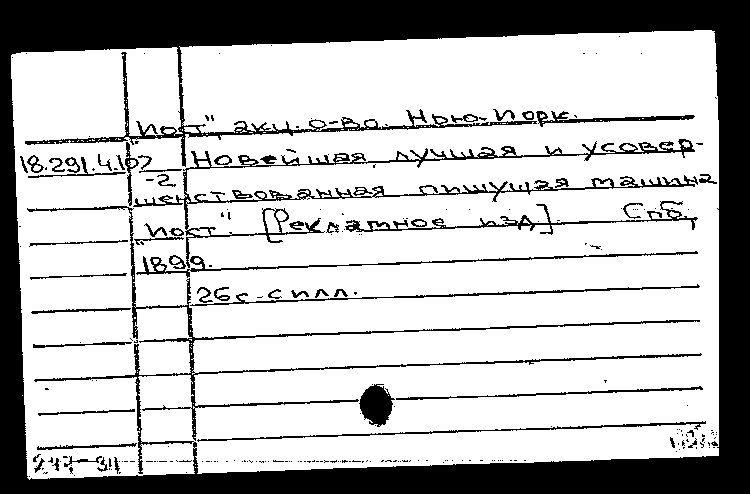 "Иост", акц. о-во. Нью-Йорк.
18.291.4.107 Новейшая, лучшая и усовер-
-2
шенствованная пишущая машина
"Иост". [Рекламное изд]. Спб,
1899.
26 с. с илл.
247-811